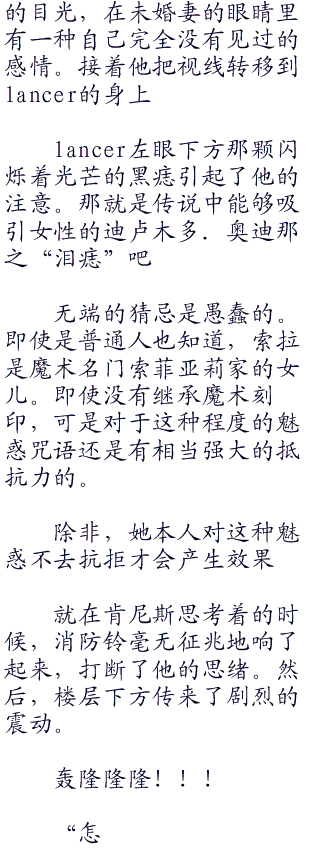 的目光，在未婚妻的眼睛里
有一种自己完全没有见过的
感情。接着他把视线转移到
lancer的身上
lancer左眼下方那颗闪
烁着光芒的黑痣引起了他的
注意。那就是传说中能够吸
引女性的迪卢木多．奥迪那
之“泪痣”吧
无端的猜忌是愚蠢的。
即使是普通人也知道，索拉
是魔术名门索菲亚莉家的女
儿。即使没有继承魔术刻
印，可是对于这种程度的魅
惑咒语还是有相当强大的抵
抗力的。
除非，她本人对这种魅
惑不去抗拒才会产生效果
就在肯尼斯思考着的时
候，消防铃毫无征兆地响了
起来，打断了他的思绪。然
后，楼层下方传来了剧烈的
震动。
轰隆隆隆！！！
“怎